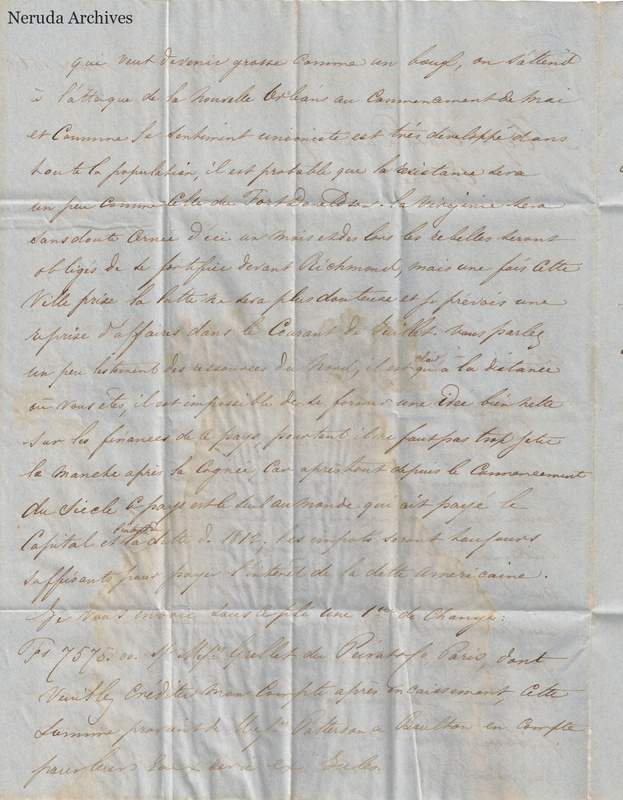 Neruda Archives
qui veut devenir grosse comme un bœuf, on s'attend
à l'attaque de la Nouvelle Orléans au commencement de mai
et comme le sentiment unioniste est très développé dans
toute la population, il est probable que la résistance sera
un peu comme celle du Fort Donelson. La Virginie sera
sans doute cernée d'ici un mois et dès lors les rebelles seront
obligés de se fortifier devant Richmond, mais une fois cette
ville prise la lutte ne sera plus douteuse et je prévois une
reprise d'affaires dans le courant de Juillet. Vous parlez
un peu lestement des ressources du Nord, il est clair qu'à la distance
où vous êtes, il est impossible de se former une idée bien nette
sur les finances de ce pays pourtant il ne faut pas trop jeter
la manche après la cognée car après tout depuis le commencement
du siècle ce pays est le seul au monde qui ait payé le
capital et la dette de 1812; les impôts seront toujours
suffisants pour payer l'intérêt de la dette américaine.
Je vous envoie sous ce pli une 1re de change:
Fs 7575.00 Sr Messrs Grellet du Peirat & Co Paris, dont
veuillez créditer mon compte après encaissement, cette
somme provient de Messrs Patterson & Boulton en compte
pour leurs